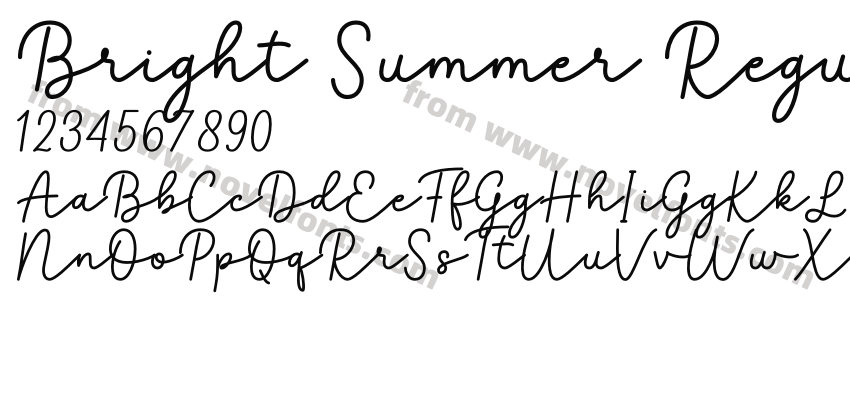 Bright Summer Regu
1234567890
AaBbCcDdEeFfGgHhIiGgKkL
NnOoPpQqRrSsTtUuVvWwX
from www.novelfonts.com
from www.novelfonts.com